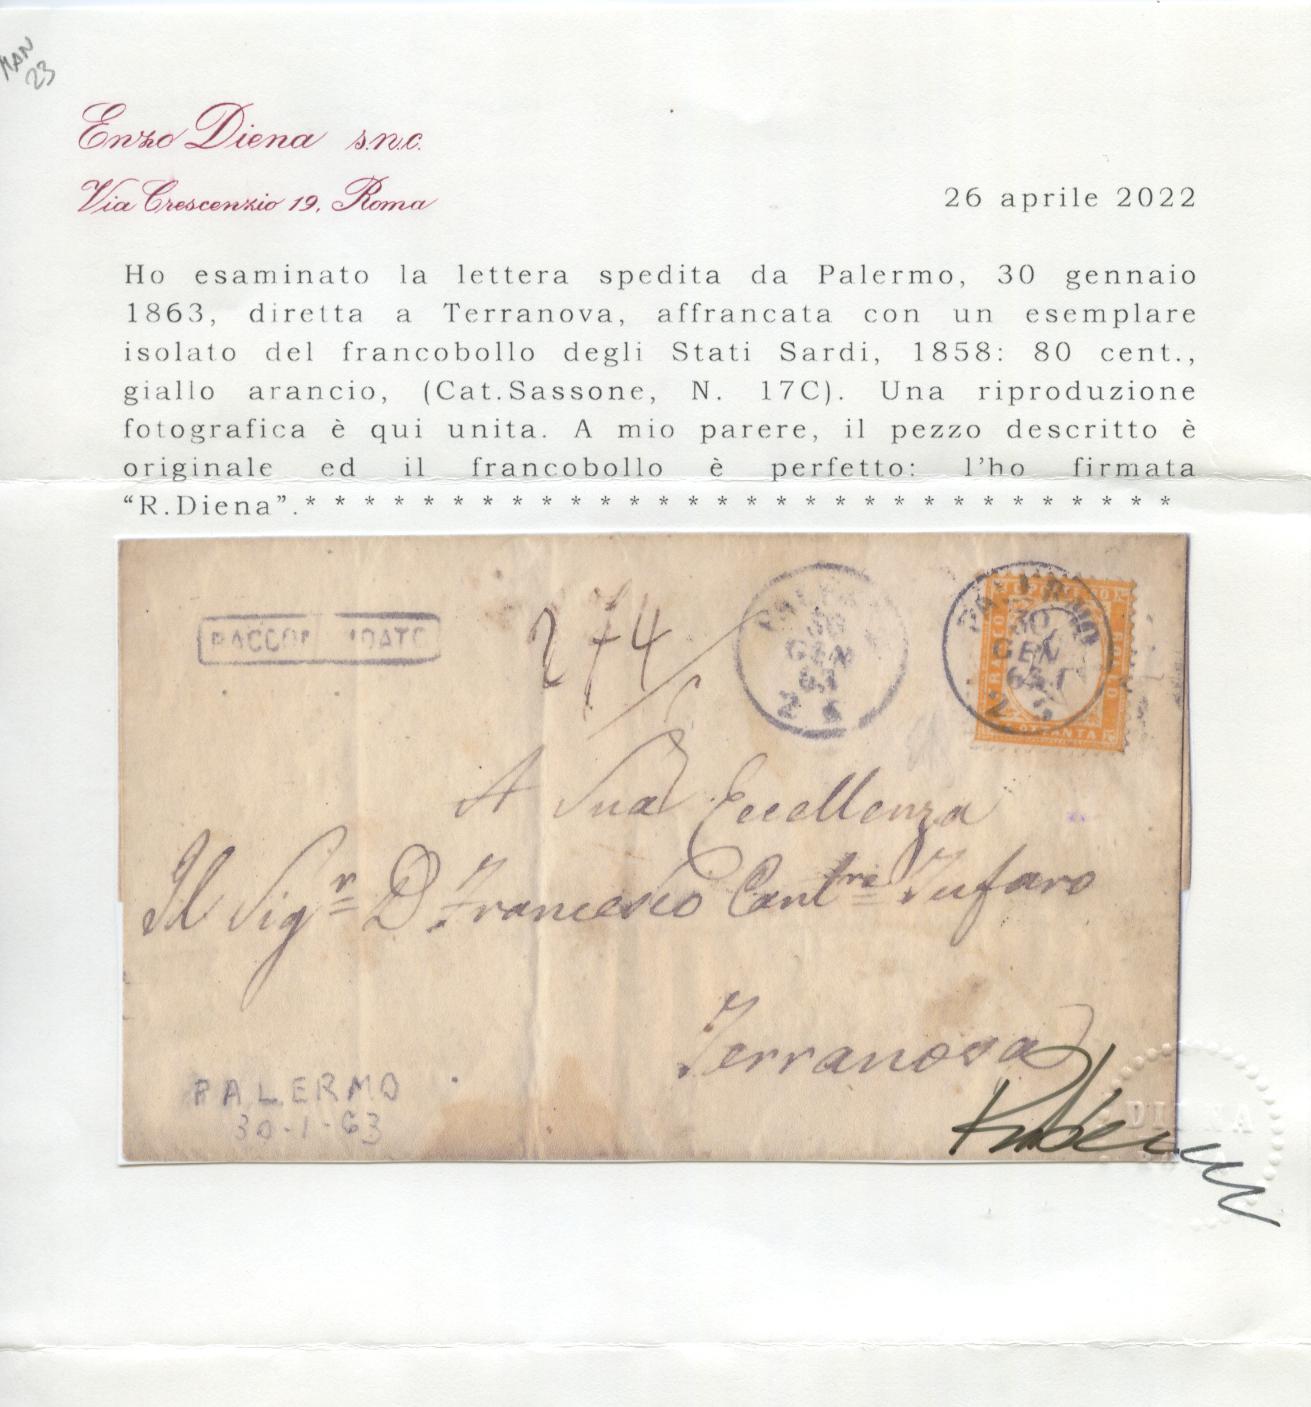 MAN
23
Enzo Diena s.n.c.
Via Crescenzio 19, Roma
26 aprile 2022
Ho esaminato la lettera spedita da Palermo, 30 gennaio
1863, diretta a Terranova, affrancata con un esemplare
isolato del francobollo degli Stati Sardi, 1858: 80 cent.,
giallo arancio, (Cat.Sassone, N. 17C). Una riproduzione
fotografica è qui unita. A mio parere, il pezzo descritto è
originale ed il francobollo è perfetto: l'ho firmata
“R.Diena”.* * * * * * * * * * * * * * * * * * * * * * * * * * * * * *
274
PALERMO
30
GEN
63
PALERMO
30
GEN
63
OTTANTA
A Sua Eccellenza
Il Sigr D. Francesco Tufaro
Terranova
PALERMO
30-1-63
DIENA